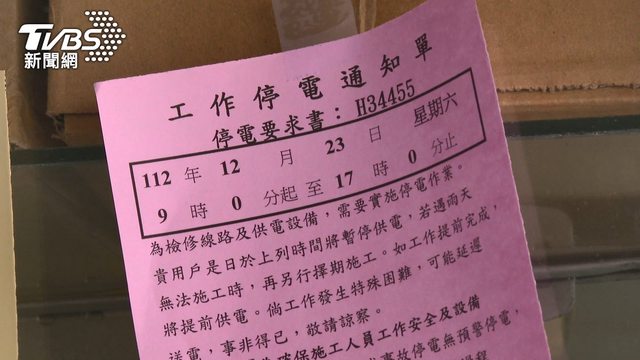 TVBS
新聞網
工作停電通知單
停電要求書：H34455
112 年 12 月 23 日 星期六
9 時 0 分起至 17 時 0 分止
為檢修線路及供電設備，需要實施停電作業。
貴用戶是日於上列時間將暫停供電，若遇雨天
無法施工時，再另行擇期施工。如工作提前完成，
將提前供電。倘工作發生特殊困難，可能延遲
送電，事非得已，敬請諒察。
確保施工人員工作安全及設備
事故停電無預警停電，